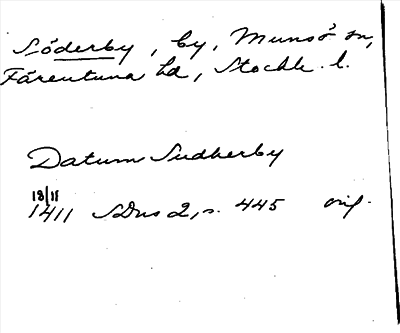 Söderby, by, Munsö sn,
Färentuna hd, Stockh. l.
Datum Sudherby
18/11
1411 SDns 2, s. 445 orig.